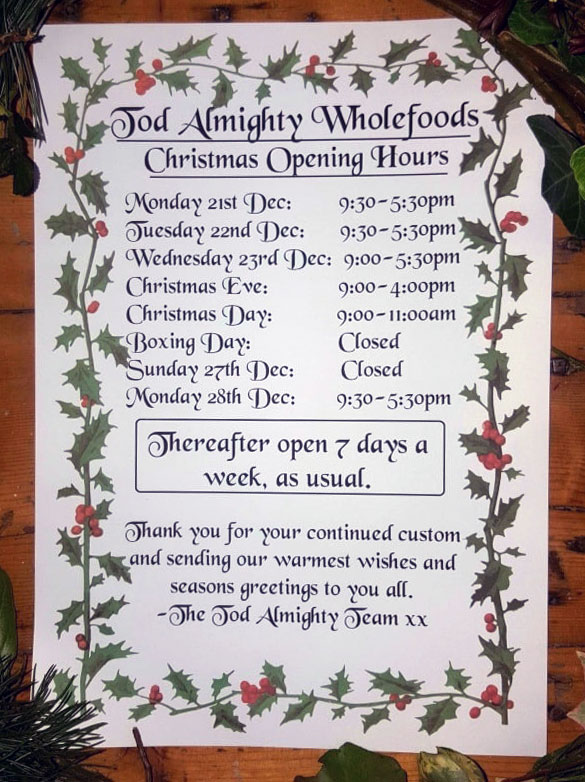 Tod Almighty Wholefoods
Christmas Opening Hours
Monday 21st Dec: 9:30-5:30pm
Tuesday 22nd Dec: 9:30-5:30pm
Wednesday 23rd Dec: 9:00-5:30pm
Christmas Eve: 9:00-4:00pm
Christmas Day: 9:00-11:00am
Boxing Day: Closed
Sunday 27th Dec: Closed
Monday 28th Dec: 9:30-5:30pm
Thereafter open 7 days a
week, as usual.
Thank you for your continued custom
and sending our warmest wishes and
seasons greetings to you all.
-The Tod Almighty Team xx